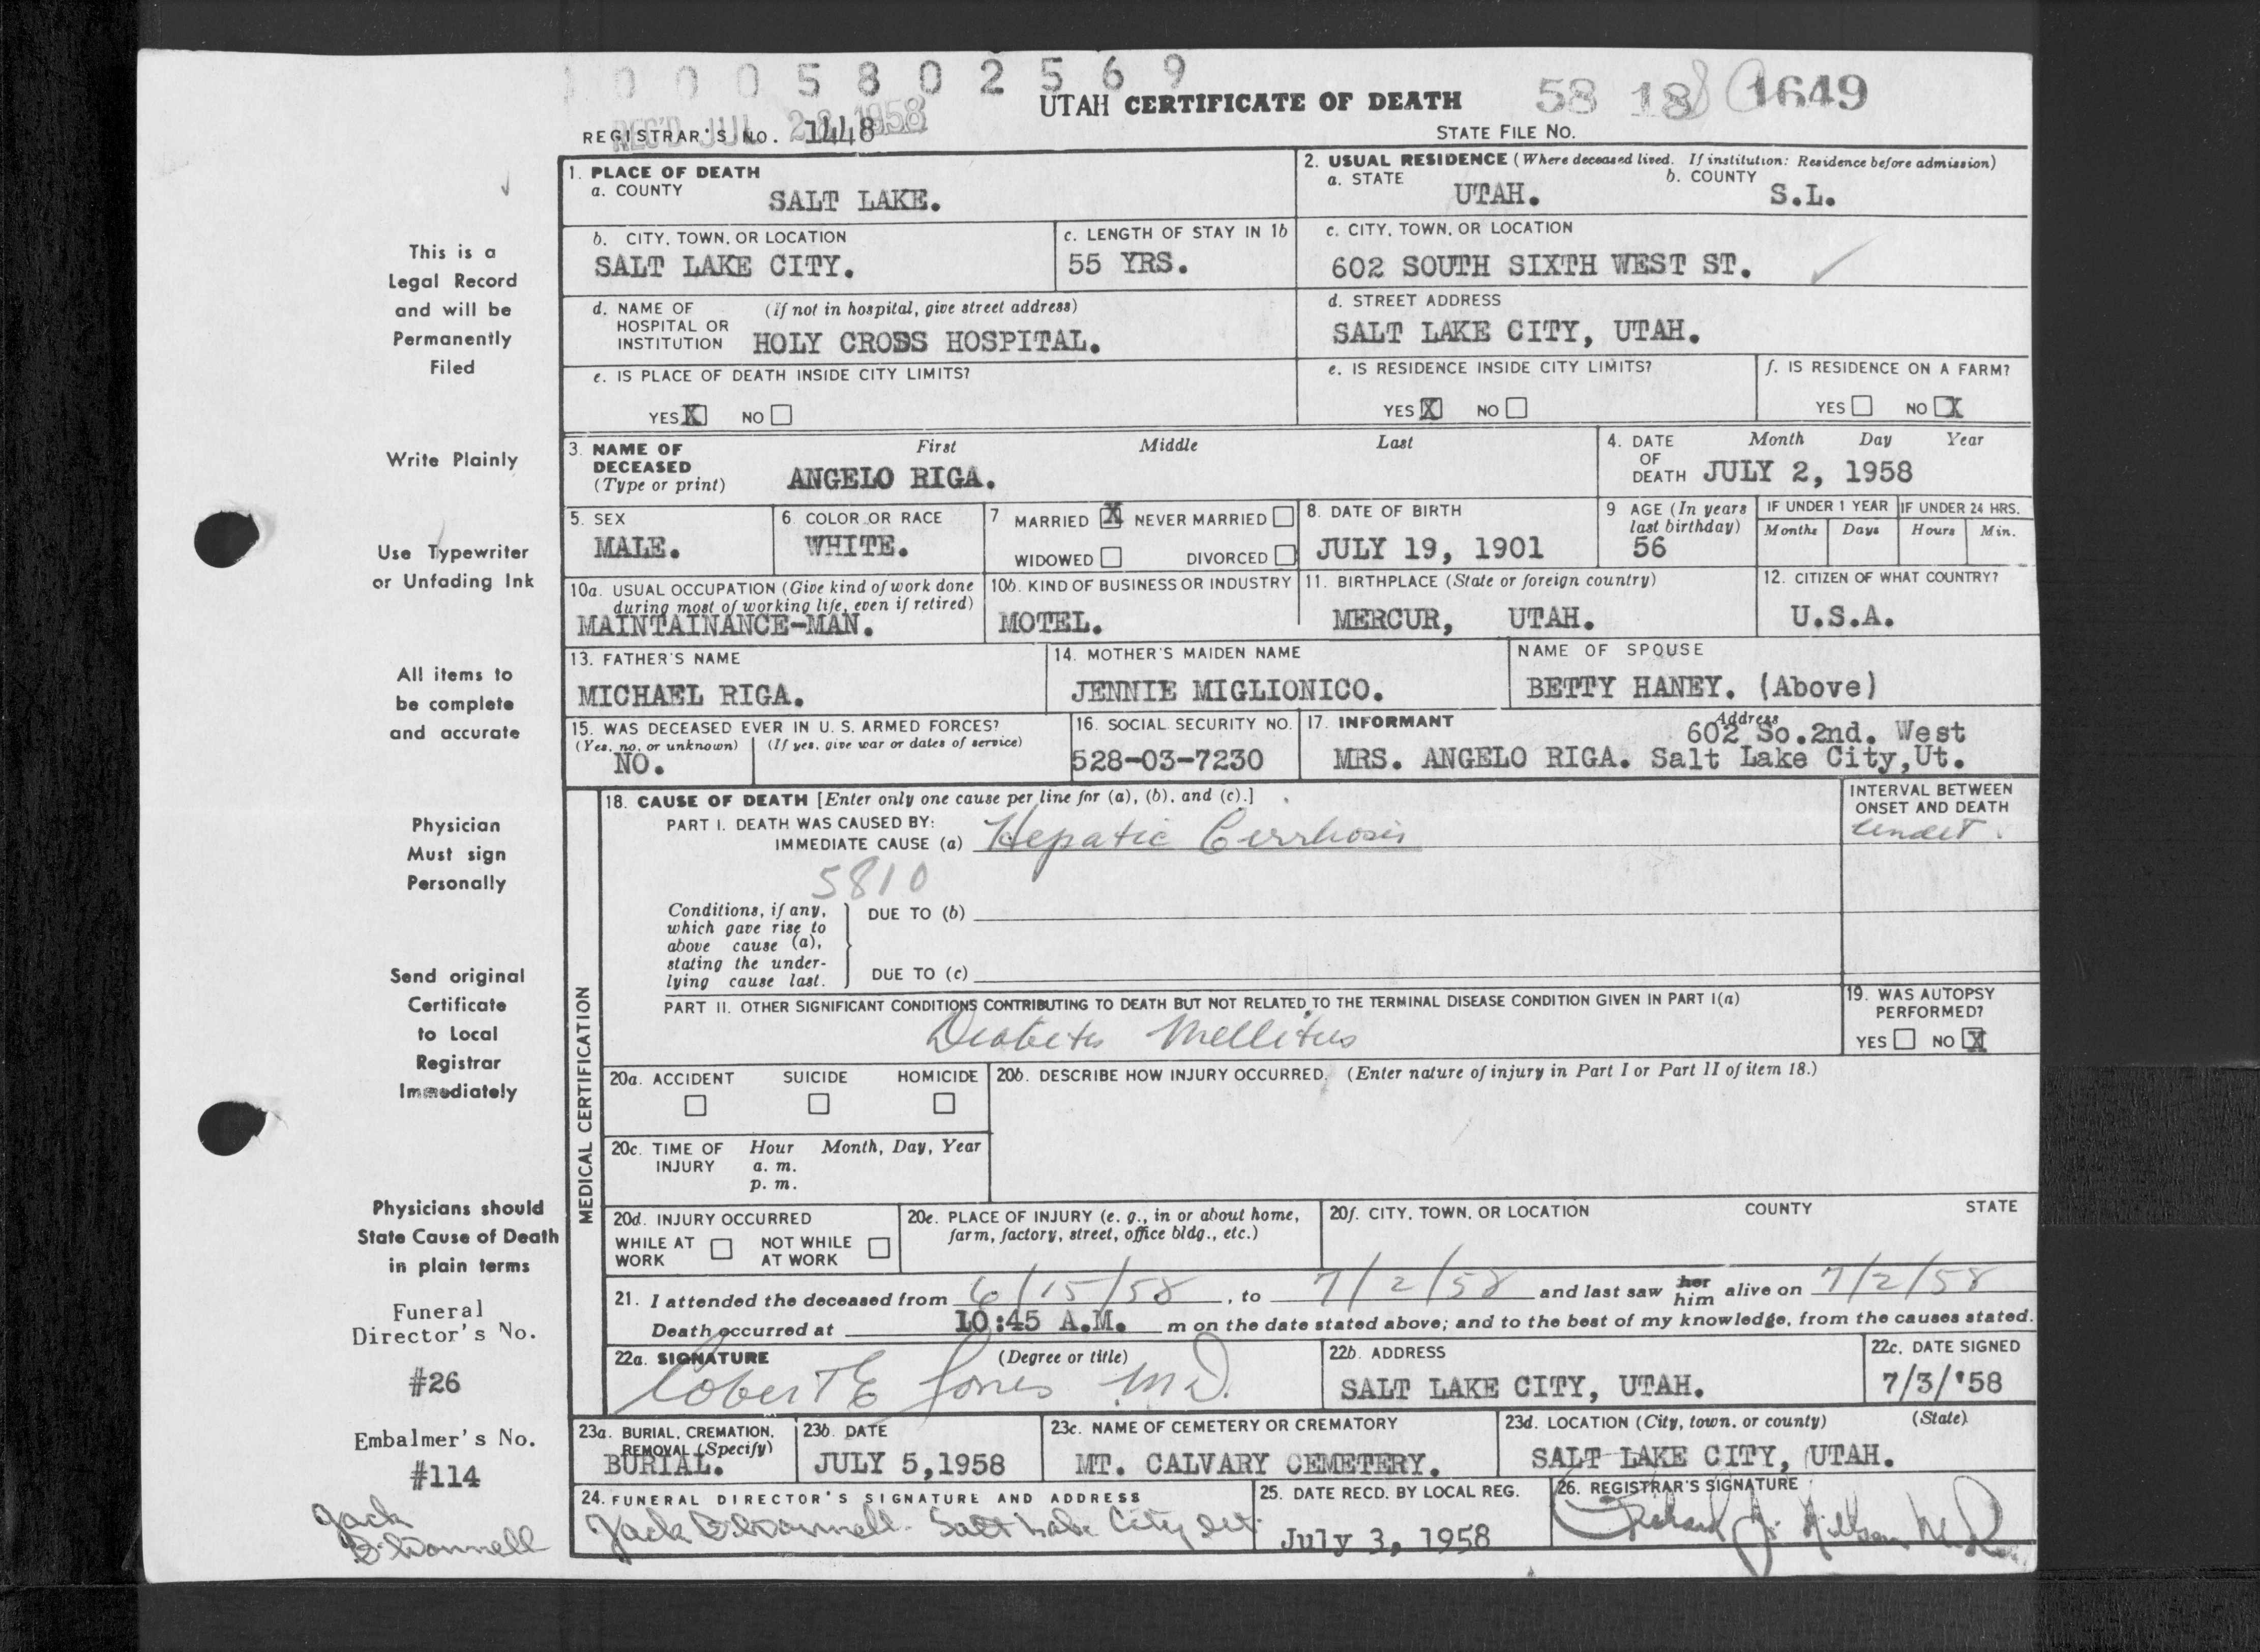 0 0 0 5 8 0 2 5 6 9
UTAH CERTIFICATE OF DEATH
58 18 1649
REC'D JUL 1958
REGISTRAR'S NO. 1448
STATE FILE NO.
1. PLACE OF DEATH
a. COUNTY SALT LAKE.
2. USUAL RESIDENCE (Where deceased lived. If institution: Residence before admission)
a. STATE UTAH. b. COUNTY S.L.
b. CITY, TOWN, OR LOCATION
SALT LAKE CITY.
c. LENGTH OF STAY IN 1b
55 YRS.
c. CITY, TOWN, OR LOCATION
602 SOUTH SIXTH WEST ST.
d. NAME OF HOSPITAL OR INSTITUTION (If not in hospital, give street address)
HOLY CROSS HOSPITAL.
d. STREET ADDRESS
SALT LAKE CITY, UTAH.
e. IS PLACE OF DEATH INSIDE CITY LIMITS?
YES X NO
e. IS RESIDENCE INSIDE CITY LIMITS?
YES X NO
f. IS RESIDENCE ON A FARM?
YES NO X
3. NAME OF DECEASED (Type or print) First Middle Last
ANGELO RIGA.
4. DATE OF DEATH Month Day Year
JULY 2, 1958
5. SEX
MALE.
6. COLOR OR RACE
WHITE.
7 MARRIED X NEVER MARRIED
WIDOWED DIVORCED
8. DATE OF BIRTH
JULY 19, 1901
9 AGE (In years last birthday)
56
IF UNDER 1 YEAR IF UNDER 24 HRS.
Months Days Hours Min.
10a. USUAL OCCUPATION (Give kind of work done during most of working life, even if retired)
MAINTAINANCE-MAN.
10b. KIND OF BUSINESS OR INDUSTRY
MOTEL.
11. BIRTHPLACE (State or foreign country)
MERCUR, UTAH.
12. CITIZEN OF WHAT COUNTRY?
U.S.A.
13. FATHER'S NAME
MICHAEL RIGA.
14. MOTHER'S MAIDEN NAME
JENNIE MIGLIONICO.
NAME OF SPOUSE
BETTY HANEY. (Above)
15. WAS DECEASED EVER IN U. S. ARMED FORCES?
(Yes, no, or unknown) (If yes, give war or dates of service)
NO.
16. SOCIAL SECURITY NO.
528-03-7230
17. INFORMANT Address
602 So.2nd. West
MRS. ANGELO RIGA. Salt Lake City,Ut.
MEDICAL CERTIFICATION
18. CAUSE OF DEATH [Enter only one cause per line for (a), (b), and (c).]
INTERVAL BETWEEN ONSET AND DEATH
PART I. DEATH WAS CAUSED BY:
IMMEDIATE CAUSE (a) Hepatic Cirrhosis
undet.
5810
Conditions, if any, which gave rise to above cause (a), stating the underlying cause last.
DUE TO (b)
DUE TO (c)
PART II. OTHER SIGNIFICANT CONDITIONS CONTRIBUTING TO DEATH BUT NOT RELATED TO THE TERMINAL DISEASE CONDITION GIVEN IN PART I(a)
Diabetes Mellitus
19. WAS AUTOPSY PERFORMED?
YES NO X
20a. ACCIDENT SUICIDE HOMICIDE
20b. DESCRIBE HOW INJURY OCCURRED. (Enter nature of injury in Part I or Part II of item 18.)
20c. TIME OF INJURY Hour Month, Day, Year
a. m.
p. m.
20d. INJURY OCCURRED
WHILE AT WORK NOT WHILE AT WORK
20e. PLACE OF INJURY (e. g., in or about home, farm, factory, street, office bldg., etc.)
20f. CITY, TOWN, OR LOCATION COUNTY STATE
21. I attended the deceased from 6/15/58, to 7/2/58 and last saw her him alive on 7/2/58
Death occurred at 10:45 A.M. m on the date stated above; and to the best of my knowledge, from the causes stated.
22a. SIGNATURE (Degree or title)
Robert E Jones M.D.
22b. ADDRESS
SALT LAKE CITY, UTAH.
22c. DATE SIGNED
7/3/'58
23a. BURIAL, CREMATION, REMOVAL (Specify)
BURIAL.
23b. DATE
JULY 5,1958
23c. NAME OF CEMETERY OR CREMATORY
MT. CALVARY CEMETERY.
23d. LOCATION (City, town, or county) (State)
SALT LAKE CITY, UTAH.
24. FUNERAL DIRECTOR'S SIGNATURE AND ADDRESS
Jack O'Donnell. Salt Lake City Ut.
25. DATE RECD. BY LOCAL REG.
July 3, 1958
26. REGISTRAR'S SIGNATURE
This is a
Legal Record
and will be
Permanently
Filed
Write Plainly
Use Typewriter
or Unfading Ink
All items to
be complete
and accurate
Physician
Must sign
Personally
Send original
Certificate
to Local
Registrar
Immediately
Physicians should
State Cause of Death
in plain terms
Funeral
Director's No.
#26
Embalmer's No.
#114
Jack
O'Donnell